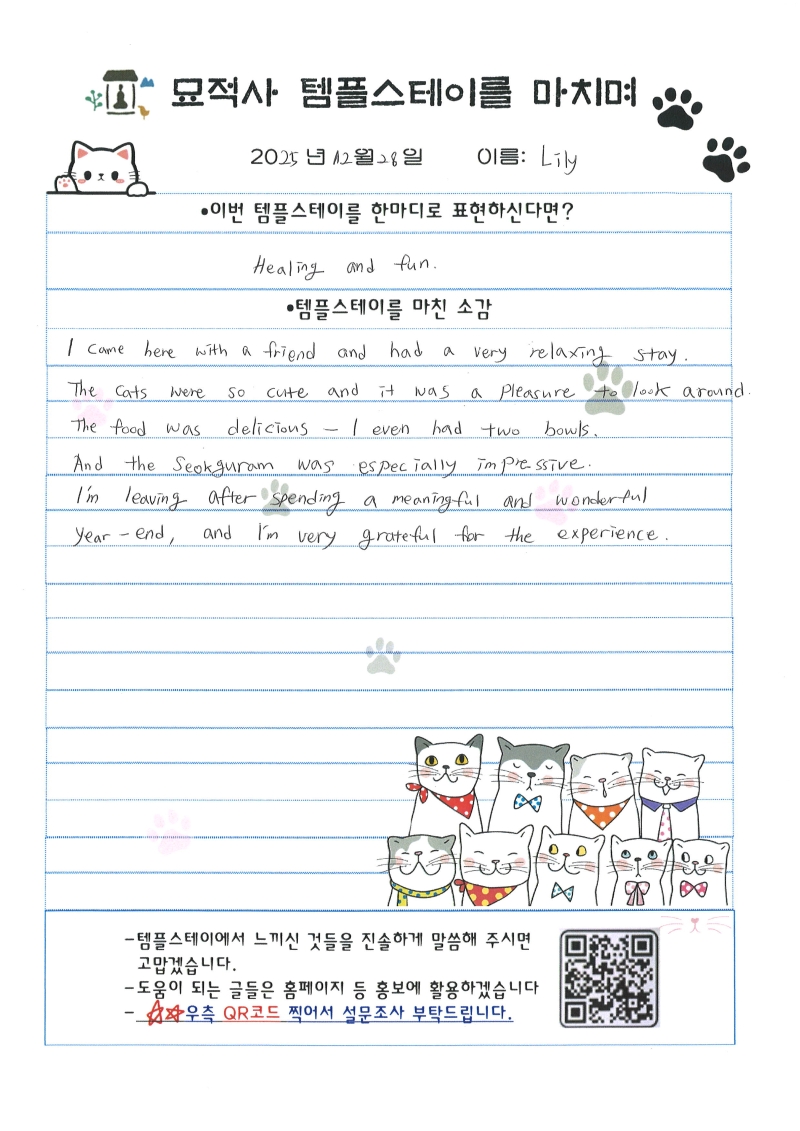 묘적사 템플스테이를 마치며
2025년 12월 28일 이름: Lily
•이번 템플스테이를 한마디로 표현하신다면?
Healing and fun.
•템플스테이를 마친 소감
I came here with a friend and had a very relaxing stay.
The cats were so cute and it was a pleasure to look around.
The food was delicious – I even had two bowls.
And the Seokguram was especially impressive.
I'm leaving after spending a meaningful and wonderful
year-end, and I'm very grateful for the experience.
-템플스테이에서 느끼신 것들을 진솔하게 말씀해 주시면
고맙겠습니다.
-도움이 되는 글들은 홈페이지 등 홍보에 활용하겠습니다
- ☆☆우측 QR코드 찍어서 설문조사 부탁드립니다.